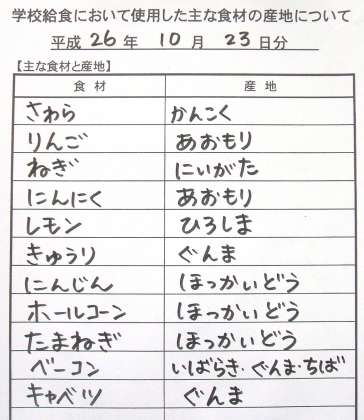 学校給食において使用した主な食材の産地について
平成 26 年 10 月 23 日分
【主な食材と産地】
食材 産地
さわら かんこく
りんご あおもり
ねぎ にいがた
にんにく あおもり
レモン ひろしま
きゅうり ぐんま
にんじん ほっかいどう
ホールコーン ほっかいどう
たまねぎ ほっかいどう
ベーコン いばらき・ぐんま・ちば
キャベツ ぐんま